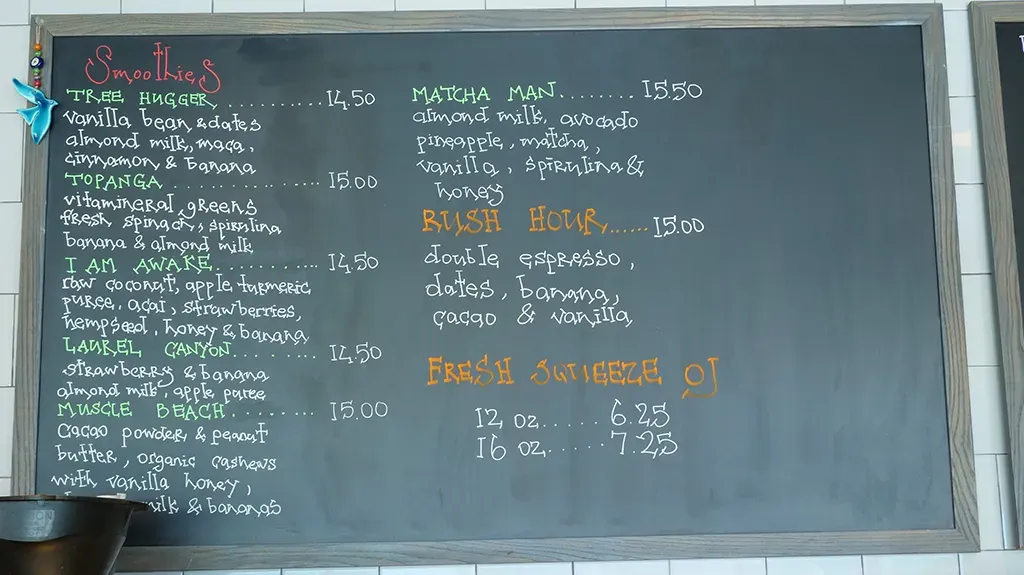 Smoothies
TREE HUGGER ............ 14.50
vanilla bean & dates
almond milk, maca,
cinnamon & banana
TOPANGA .................. 15.00
vitamineral greens
fresh spinach, spirulina
banana & almond milk
I AM AWAKE ............ 14.50
raw coconut, apple turmeric
puree, acai, strawberries,
hempseed, honey & banana
LAUREL CANYON .......... 14.50
strawberry & banana
almond milk, apple puree
MUSCLE BEACH ......... 15.00
cacao powder & peanut
butter, organic cashews
with vanilla honey,
milk & bananas
MATCHA MAN ........ 15.50
almond milk, avocado
pineapple, matcha,
vanilla, spirulina &
honey
RUSH HOUR ...... 15.00
double espresso,
dates, banana,
cacao & vanilla
FRESH SQUEEZE OJ
12 oz ...... 6.25
16 oz ...... 7.25